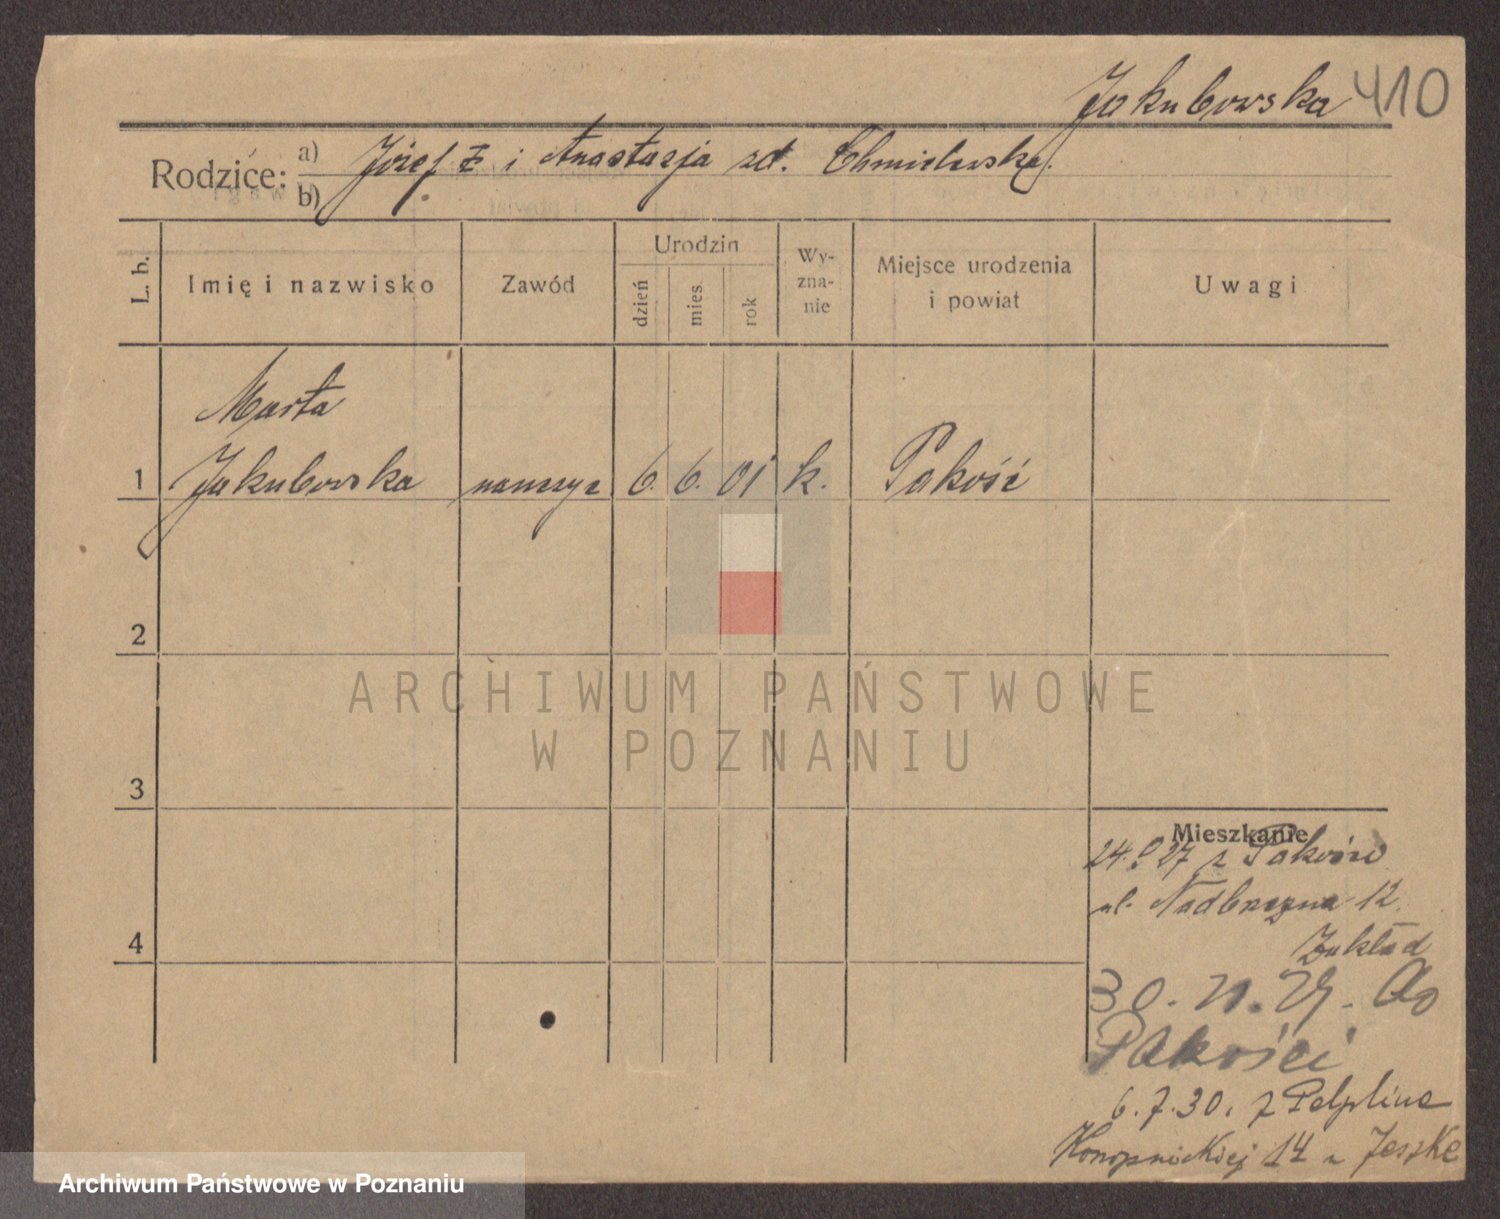 Jakubowska 410
Rodzice: a) Józef i Anastazja zd. Chmielewska
b)
L. b. Imię i nazwisko Zawód Urodzin dzień mies. rok Wyznanie Miejsce urodzenia i powiat Uwagi
Marta
1 Jakubowska nauczyc 6. 6. 01 k. Pakość
2
3
4
Mieszkanie
27 z Pakości
ul. Nadbrzeżna 12
Zakład
30. 11. 29. do
Pakości
6. 7. 30. z Pelplina
Konopnickiej 14 u Jeszke
ARCHIWUM PAŃSTWOWE
W POZNANIU
Archiwum Państwowe w Poznaniu